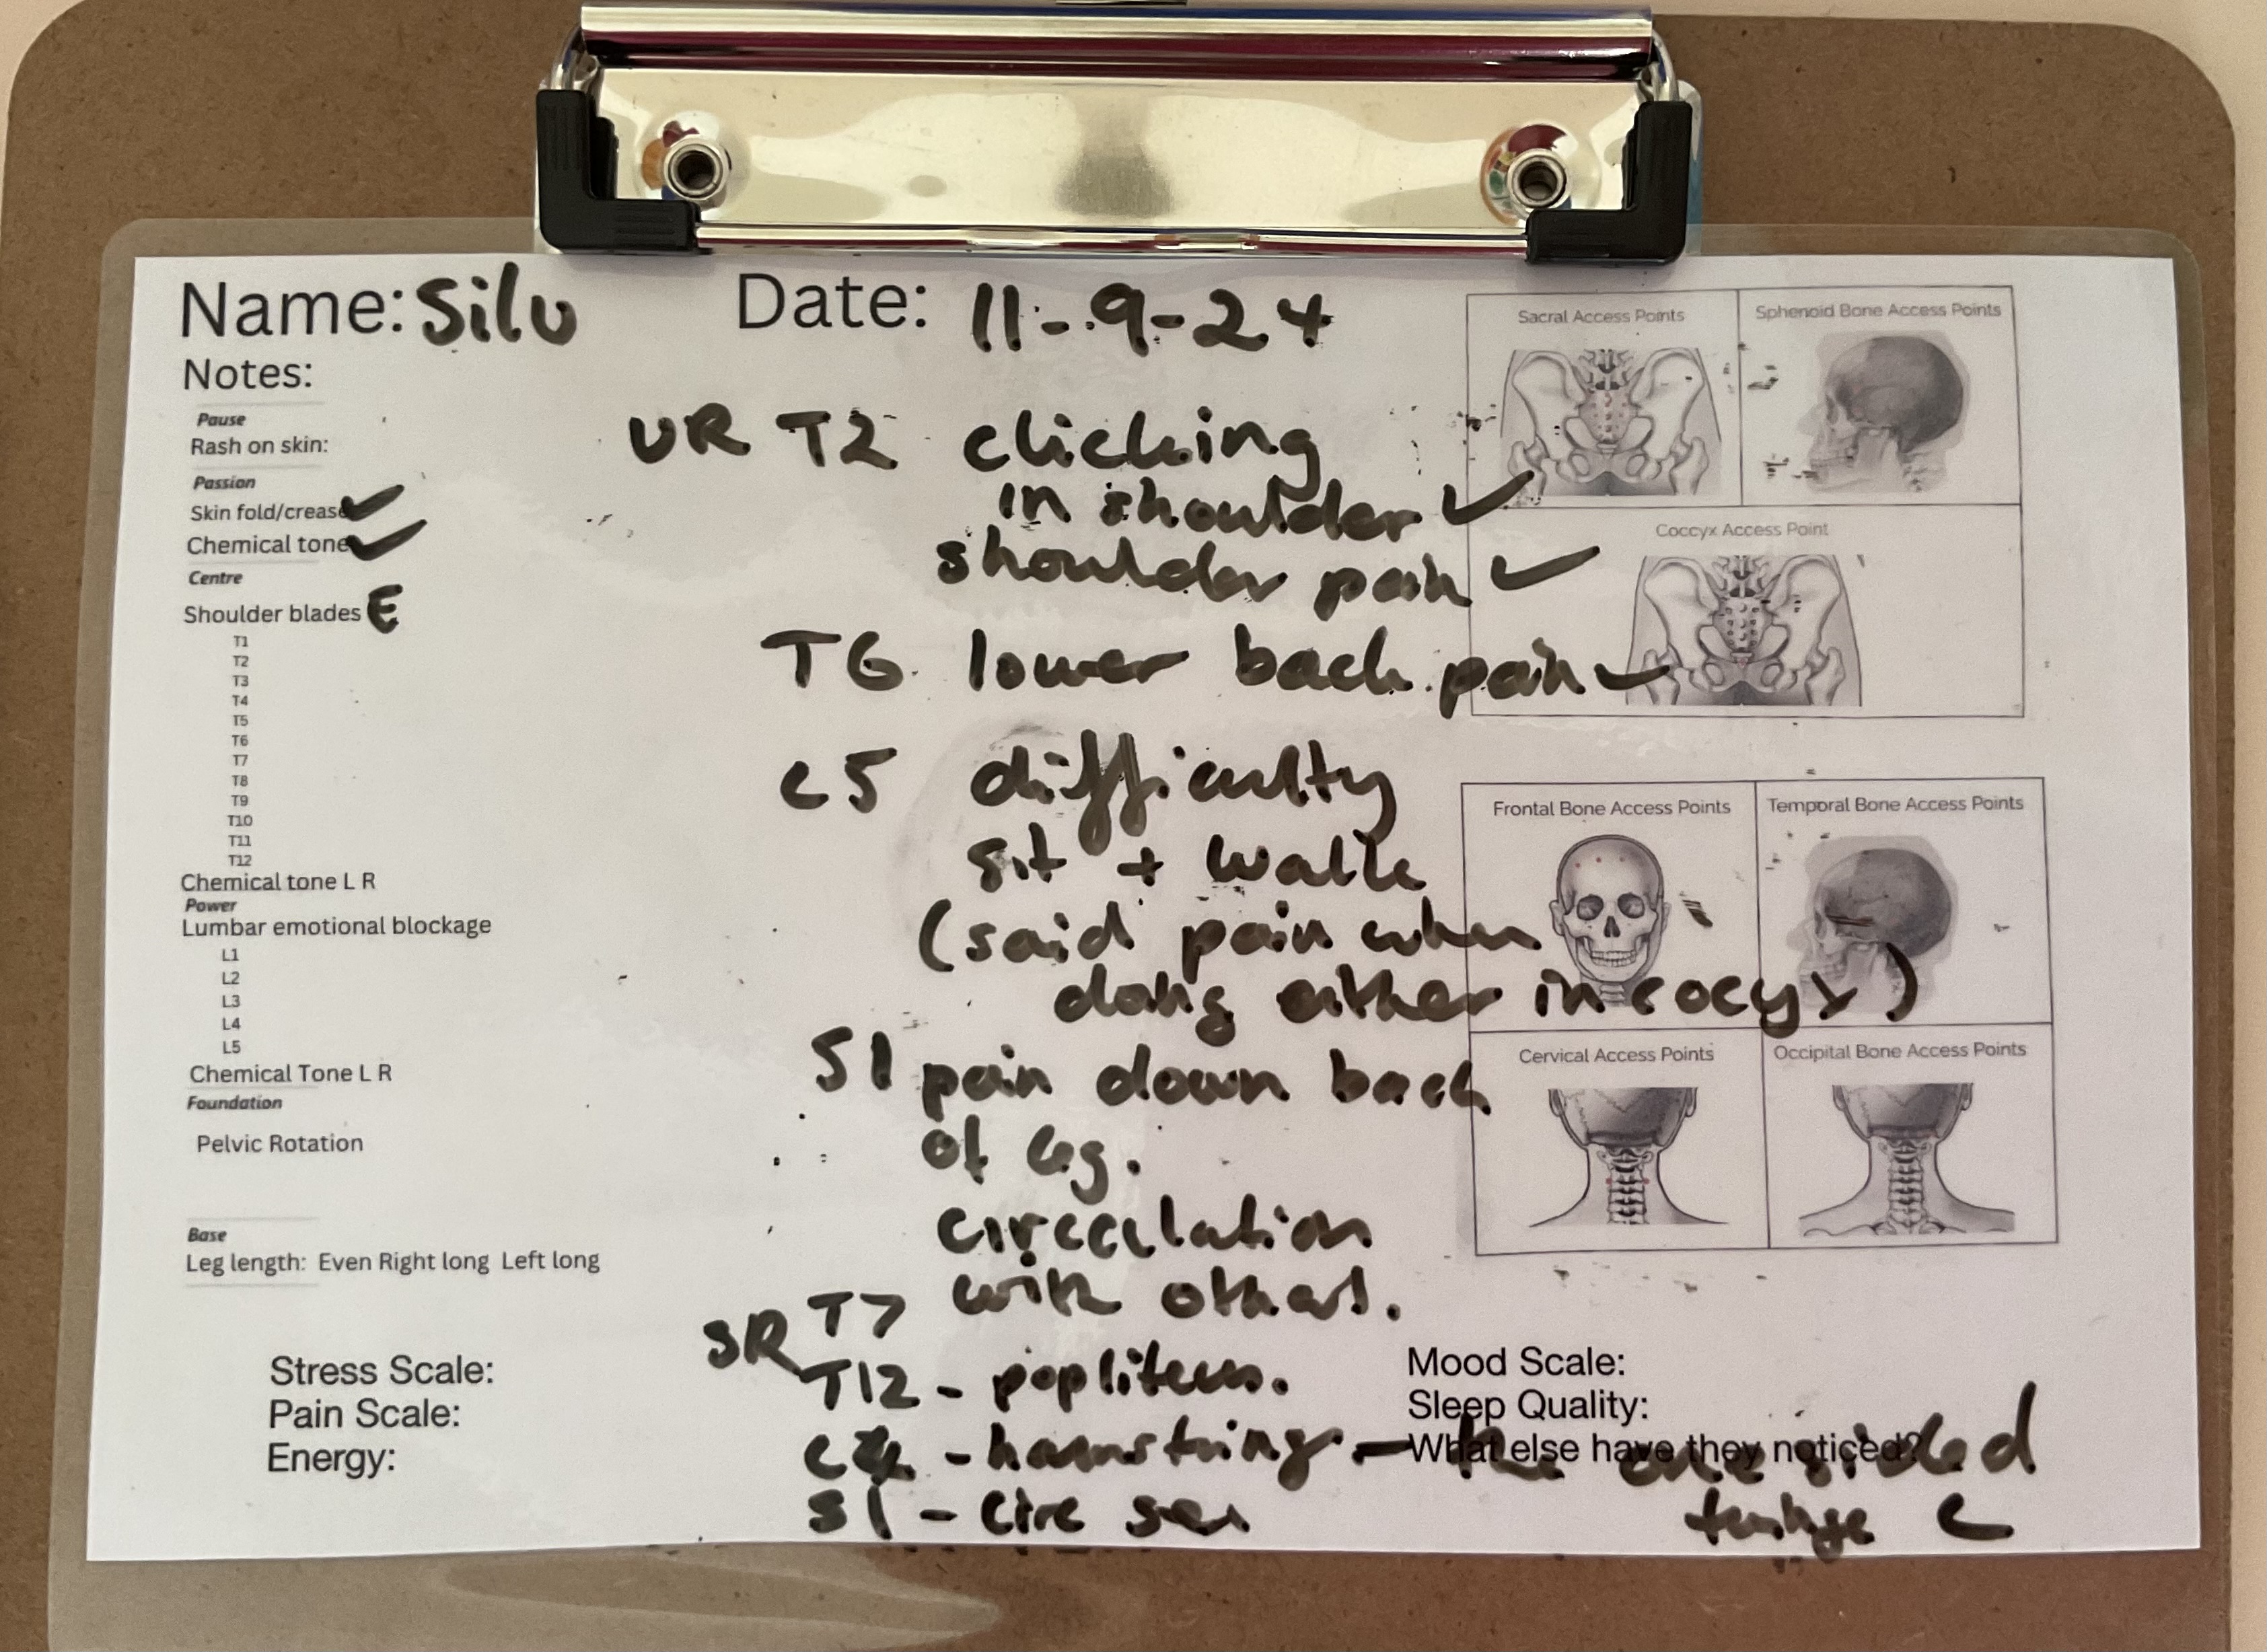 Name: Silu Date: 11-9-24
Notes:
Pause
Rash on skin:
Passion
Skin fold/crease ✓
Chemical tone ✓
Centre
Shoulder blades E
T1
T2
T3
T4
T5
T6
T7
T8
T9
T10
T11
T12
Chemical tone L R
Power
Lumbar emotional blockage
L1
L2
L3
L4
L5
Chemical Tone L R
Foundation
Pelvic Rotation
Base
Leg length: Even Right long Left long
Stress Scale:
Pain Scale:
Energy:
UR T2 clicking
in shoulder ✓
shoulder pain ✓
T6 lower back pain ✓
C5 difficulty
sit + walk
(said pain when
doing either in cocyx)
S1 pain down back
of leg.
circulation
with
SR T7
T12 - popliteus.
- hamstring - the one sided
S1 - circ
Sacral Access Points
Sphenoid Bone Access Points
Coccyx Access Point
Frontal Bone Access Points
Temporal Bone Access Points
Cervical Access Points
Occipital Bone Access Points
Mood Scale:
Sleep Quality:
What else have they noticed?